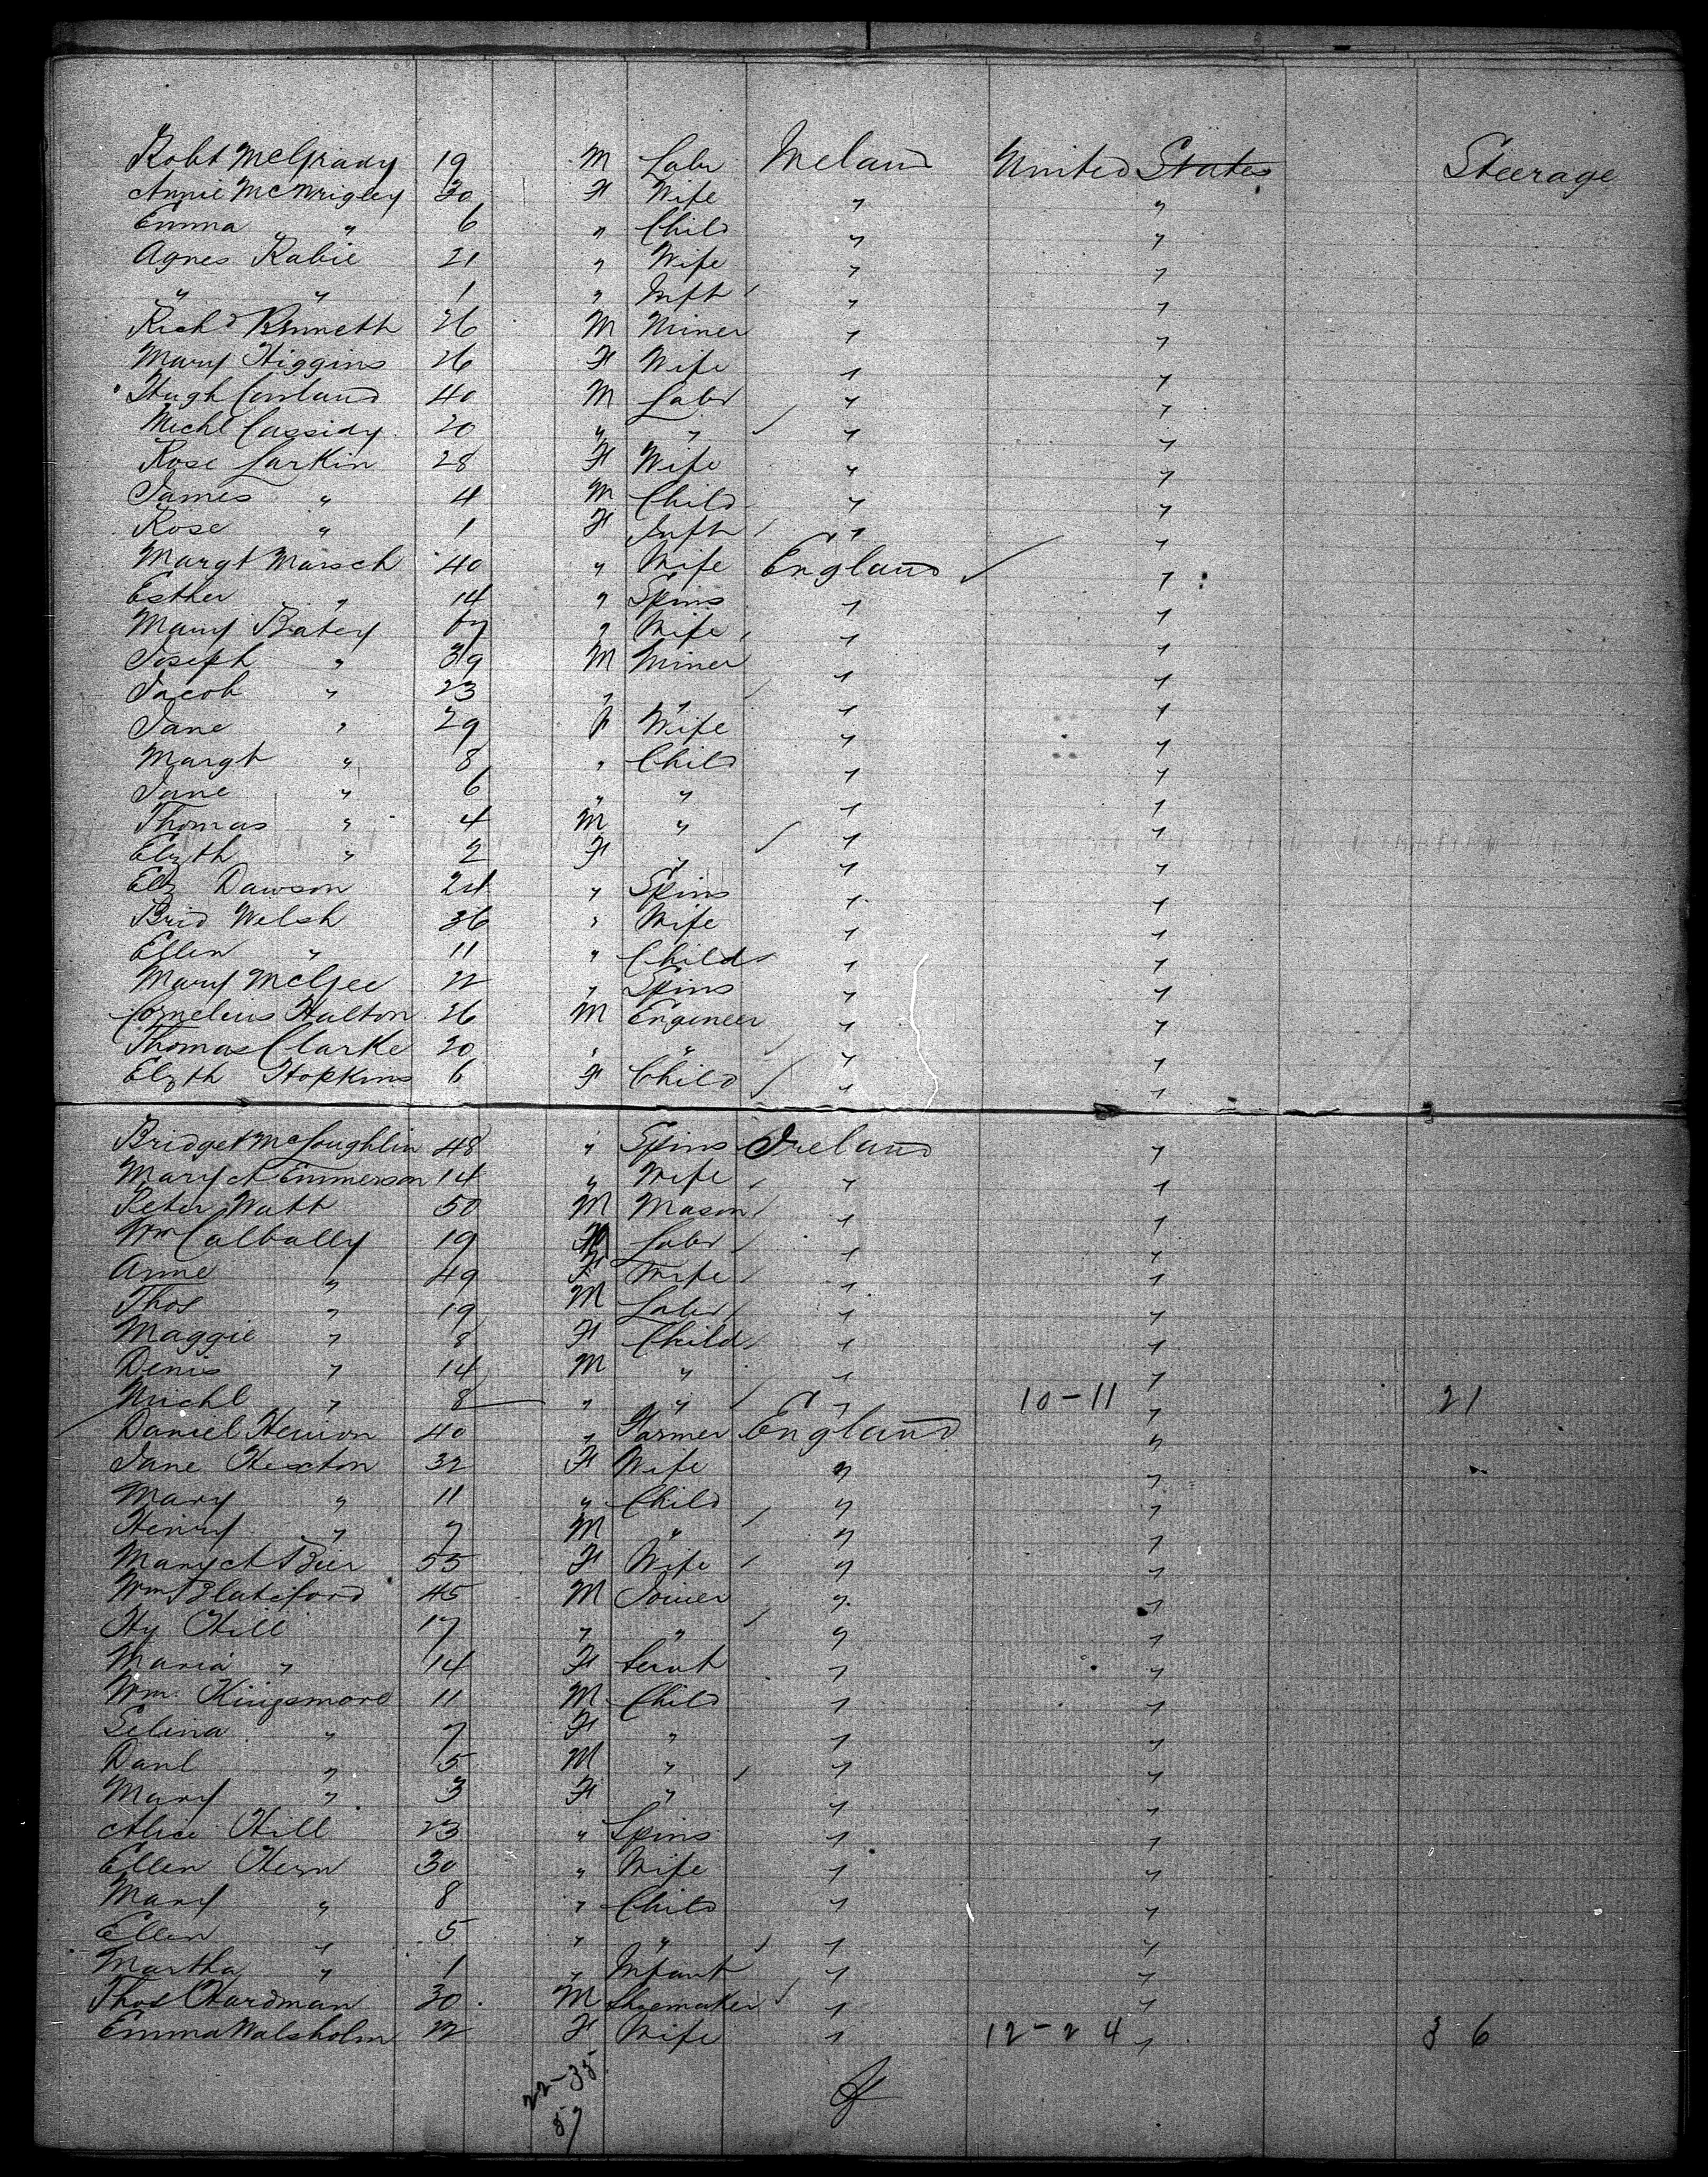 Robt McGrady 19 M Labr Ireland United States Steerage
Annie McWrigley 30 F Wife " "
Emma " 6 " Child " "
Agnes Rabie 21 " Wife " "
" " 1 " Inft " "
Richd Bennett 26 M Miner " "
Mary Higgins 26 F Wife " "
Hugh Conland 40 M Labr " "
Michl Cassidy 20 " " " "
Rose Larkin 28 F Wife " "
James " 4 M Child " "
Rose " 1 F Inft " "
Margt Marsch 40 " Wife England "
Esther " 14 " Spins " "
Mary Batey 67 " Wife " "
Joseph " 39 M Miner " "
Jacob " 23 " " " "
Jane " 29 F Wife " "
Margt " 8 " Child " "
Jane " 6 " " " "
Thomas " 4 M " " "
Elzth " 2 F " " "
Elz Dawson 24 " Spins " "
Brid Welsh 36 " Wife " "
Ellen " 11 " Child " "
Mary McGee 22 " Spins " "
Cornelius Halton 26 M Engineer " "
Thomas Clarke 20 " " " "
Elzth Hopkins 6 F Child " "
Bridget McLoughlin 48 " Spins Ireland "
Mary A Emmerson 14 " Wife " "
Peter Watt 50 M Mason " "
Wm Calbally 19 M Labr " "
Anne " 49 F Wife " "
Thos " 19 M Labr " "
Maggie " 8 F Child " "
Denis " 14 M " " "
Michl " 8 " " " 10-11 " 21
Daniel 40 " Farmer England "
Jane Hexton 32 F Wife " "
Mary " 11 " Child " "
Henry " 7 M " " "
Mary A Bier 55 F Wife " "
Wm Blateford 45 M Joiner " "
Hy Hill 17 " " " "
Maria " 14 F Servt " "
Wm Kingsmore 11 M Child " "
Selina " 7 F " " "
Danl " 5 M " " "
Mary " 3 F " " "
Alice Hill 23 " Spins " "
Ellen Hern 30 " Wife " "
Mary " 8 " Child " "
Ellen " 5 " " " "
Martha " 1 " Infant " "
Thos Hardman 30 M Shoemaker " "
Emma Walsholm 22 F Wife " 12-24 " 36
22-35
57